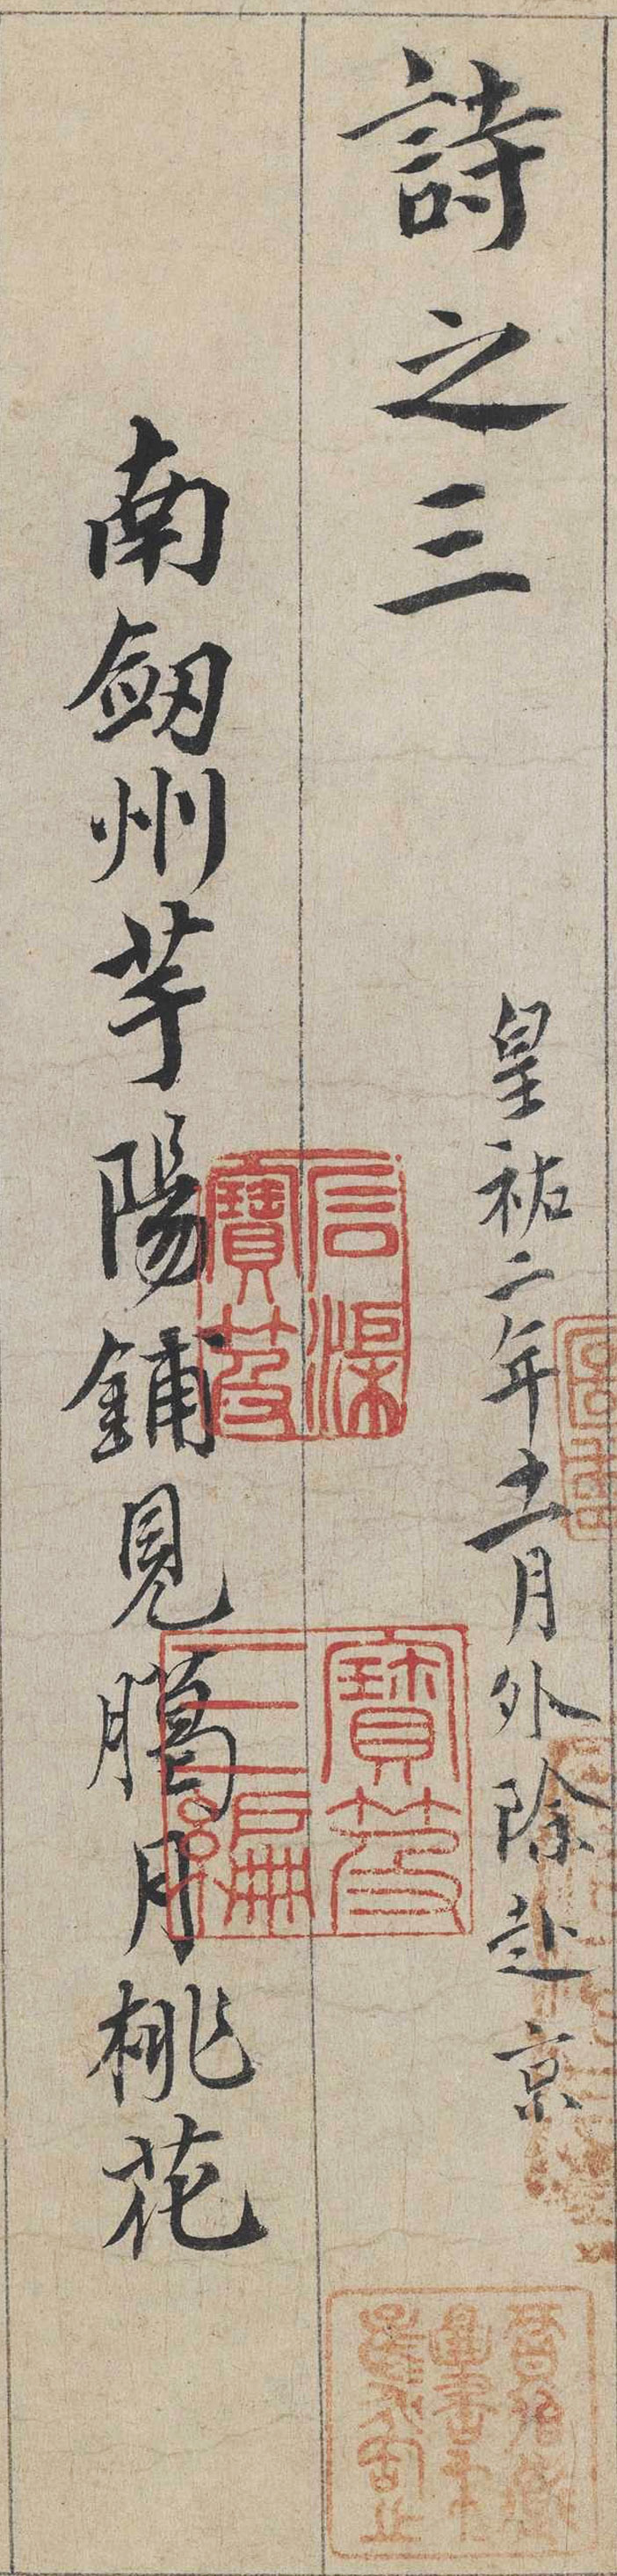 詩之三
皇祐二年十一月外除赴京
南劔州芋陽鋪見臘月桃花
石渠
寶笈
寶笈
三編